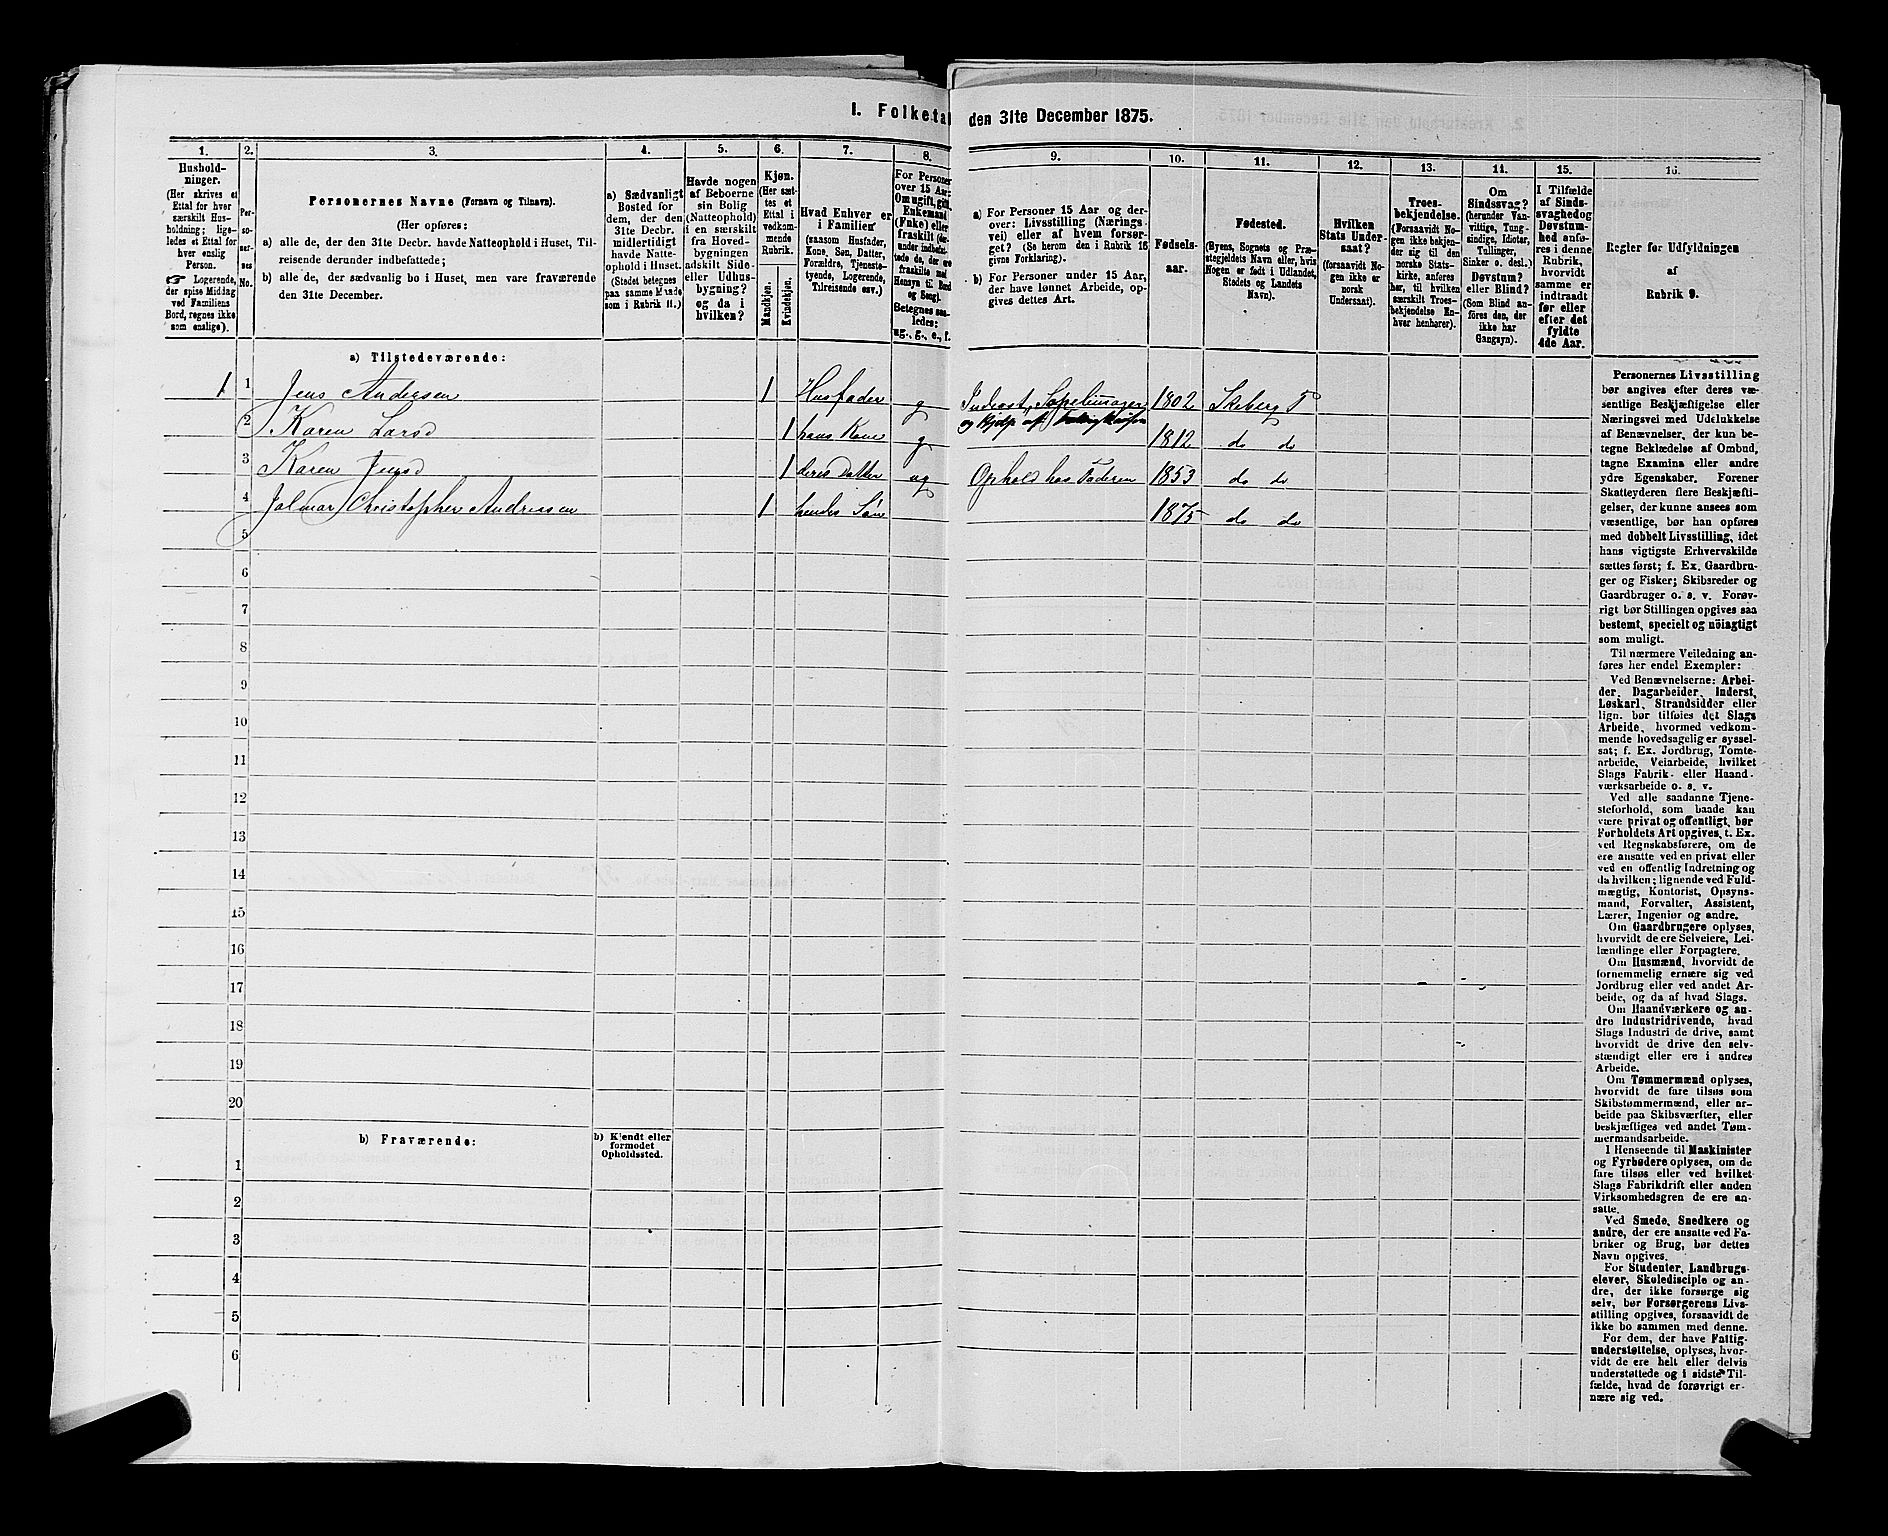 I. Folketal
den 31te December 1875.
1. 2. 3. 4. 5. 6. 7. 8. 9. 10. 11. 12. 13. 14. 15. 16.
Hushold-
ninger.
(Her skrives et
Ettal for hver
særskilt Hus-
holdning; lige-
ledes et Ettal for
hver enslig
Person.
Logerende,
der spise Middag
ved Familiens
Bord, regnes ikke
som enslige).
Per-
so-
ner-
nes
No.
Personernes Navne (Fornavn og Tilnavn).
(Her opføres:
a) alle de, der den 31te Decbr. havde Natteophold i Huset, Til-
reisende derunder indbefattede;
b) alle de, der sædvanlig bo i Huset, men vare fraværende
den 31te December.
a) Sædvanligt
Bosted for
dem, der den
31te Decbr.
midlertidigt
havde Natte-
ophold i Huset.
(Stedet betegnes
paa samme Maade
som i Rubrik 11.)
Havde nogen
af Beboerne
sin Bolig
(Natteophold)
i en særskilt
fra Hoved-
bygningen
adskilt Side-
eller Udhus-
bygning?
og da i
hvilken?
Kjøn.
(Her sæt-
tes et
Ettal i
vedkom-
mende
Rubrik.
Mandkjøn.
Kvindekjøn.
Hvad Enhver er
i Familien
(saasom Husfader,
Kone, Søn, Datter,
Forældre, Tjeneste-
tyende, Logerende,
Tilreisende osv.)
For Personer
over 15 Aar:
Om ugift, gift,
Enkemand
(Enke) eller
fraskilt
Betegnes saa-
ledes:
ug., g., e., f.
a) For Personer 15 Aar og der-
over: Livsstilling (Nærings-
vei) eller af hvem forsør-
get? (Se herom den i Rubrik 16
givne Forklaring).
b) For Personer under 15 Aar,
der have lønnet Arbeide, op-
gives dettes Art.
Fødsels-
aar.
Fødested.
(Byens, Sognets og Præ-
stegjeldets Navn eller, hvis
Nogen er født i Udlandet,
Stedets og Landets
Navn).
Hvilken
Stats Under-
saat?
(forsaavidt No-
gen ikke er
norsk
Undersaat).
Troes-
bekjendelse.
(Forsaavidt No-
gen ikke bekjen-
der sig til den
norske Stats-
kirke, anføres
her, til hvilken
særskilt Troes-
bekjendelse En-
hver henhører).
Om
Sindssvag?
(herunder Van-
vittige, Tung-
sindige, Idioter,
Tullinger,
Sinker o. desl.)
Døvstum?
eller Blind?
(Som Blind an-
føres den, der
ikke har
Gangsyn).
I Tilfælde
af Sinds-
svaghed og
Døvstum-
hed anfø-
res i denne
Rubrik,
hvorvidt
samme er
indtraadt
før eller
efter det
fyldte
4de Aar.
Regler før Udfyldningen
af
Rubrik 9.
a) Tilstedeværende:
1 1 Jens Andersen 1 Husfader g Inderst, 1802 Skeberg P
og Hjælp af
2 Karen Larsd 1 hans Kone g 1812 do do
3 Karen Jensd 1 deres Datter ug Ophold hos Faderen 1853 do do
4 Jalmar Christopher Andreasen 1 hendes Søn 1875 do do
5
6
7
8
9
10
11
12
13
14
15
16
17
18
19
20
b) Fraværende:
b) Kjendt eller
formodet
Opholdssted.
1
2
3
4
5
6
Personernes Livsstilling
bør angives efter deres væ-
sentlige Beskjæftigelse eller
Næringsvei med Udelukkelse
af Benævnelser, der kun be-
tegne Beklædelse af Ombud,
tagne Examina eller andre
ydre Egenskaber. Forener
Skatteyderen flere Beskjæfti-
gelser, der kunne ansees som
væsentlige, bør han opføres
med dobbelt Livsstilling, idet
hans vigtigste Erhvervskilde
sættes først; f. Ex. Gaardbru-
ger og Fisker; Skibsreder og
Gaardbruger o. s. v. Forøv-
rigt bør Stillingen opgives saa
bestemt, specielt og nöiagtigt
som muligt.
Til nærmere Veiledning an-
føres her endel Exempler:
Ved Benævnelserne: Arbei-
der, Dagarbeider, Inderst,
Løskarl, Strandsidder eller
lign. bør tilføies det Slags
Arbeide, hvormed vedkom-
mende hovedsagelig er syssel-
sat; f. Ex. Jordbrug, Tomte-
arbeide, Veiarbeide, hvilket
Slags Fabrik- eller Haand-
værksarbeide o. s. v.
Ved alle saadanne Tjene-
steforhold, som baade kan
være privat og offentligt, bør
Forholdets Art opgives, t. Ex.
ved Regnskabsførere, om de
ere ansatte ved en privat eller
ved en offentlig Indretning og
da hvilken; lignende ved Fuld-
mægtig, Kontorist, Opsyns-
mand, Forvalter, Assistent,
Lærer, Ingeniør og andre.
Om Gaardbrugere oplyses,
hvorvidt de ere Selveiere, Lei-
lændinge eller Forpagtere.
Om Husmænd, hvorvidt de
fornemmelig ernære sig ved
Jordbrug eller ved andet Ar-
beide, og da af hvad Slags.
Om Haandværkere og an-
dre Industridrivende, hvad
Slags Industri de drive, samt
hvorvidt de drive den selv-
stændigt eller ere i andres
Arbeide.
Om Tømmermænd oplyses,
hvorvidt de fare tilsøs som
Skibstømmermænd, eller ar-
beide paa Skibsværfter, eller
beskjæftiges ved andet Tøm-
mermandsarbeide.
I Henseende til Maskinister
og Fyrbødere oplyses, om de
fare tilsøs eller ved hvilket
Slags Fabrikdrift eller anden
Virksomhedsgren de ere an-
satte.
Ved Smede, Snedkere og
andre, der ere ansatte ved Fa-
briker og Brug, bør dettes
Navn opgives.
For Studenter, Landbrugs-
elever, Skoledisciple og an-
dre, der ikke forsørge sig
selv, bør Forsørgerens Livs-
stilling opgives, forsaavidt de
ikke bo sammen med denne.
For dem, der have Fattig-
understøttelse, oplyses, hvor-
vidt de ere helt eller delvis
understøttede og i sidste Til-
fælde, hvad de forøvrigt er-
nære sig ved.